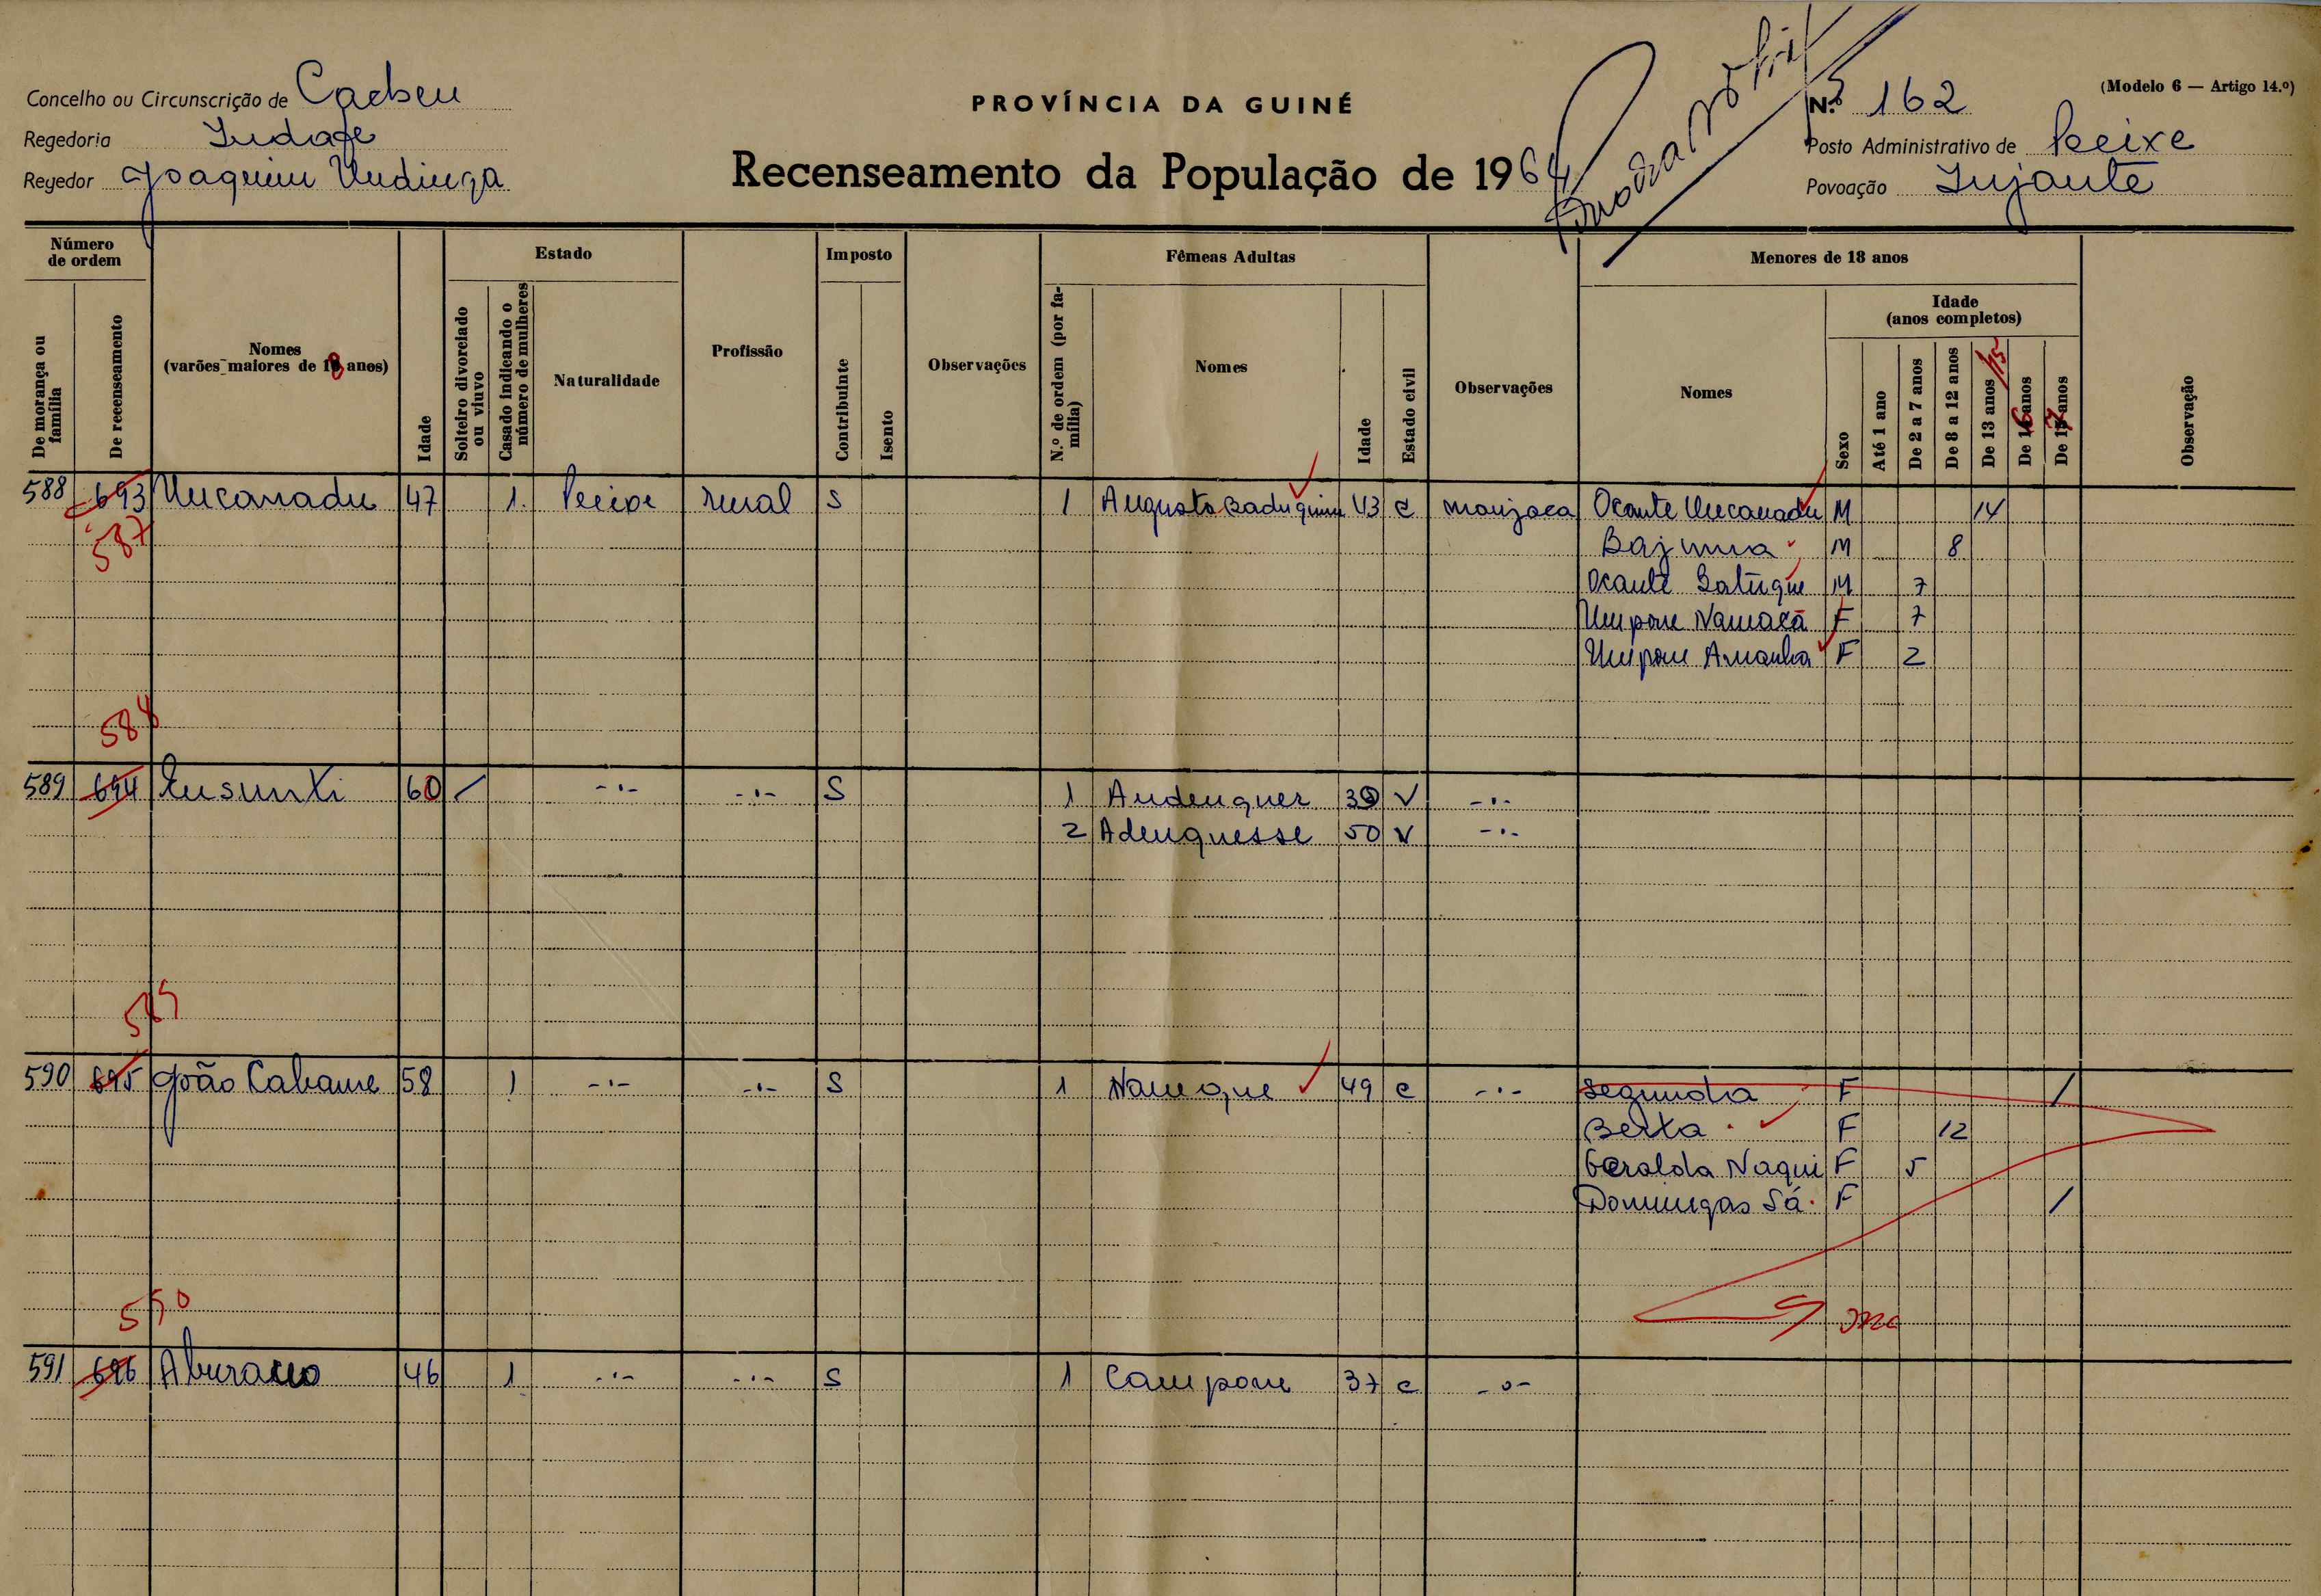 Concelho ou Circunscrição de Cacheu
Regedoria
Regedor Joaquim
PROVÍNCIA DA GUINÉ
Recenseamento da População de 1964
N.º 162
(Modelo 6 — Artigo 14.º)
Posto Administrativo de Peixe
Povoação Jujante
Número de ordem
De morança ou família
De recenseamento
Nomes (varões maiores de 18 anos)
Idade
Estado
Solteiro divorciado ou viuvo
Casado indicando o número de mulheres
Naturalidade
Profissão
Imposto
Contribuinte
Isento
Observações
Fêmeas Adultas
N.º de ordem (por família)
Nomes
Idade
Estado civil
Observações
Menores de 18 anos
Nomes
Idade (anos completos)
Sexo
Até 1 ano
De 2 a 7 anos
De 8 a 12 anos
De 13 anos /15
De 16 anos
De 17 anos
Observação
588 693 Uncanadu 47 1. rural S 1 Augusta 43 c manjaca Ocante Uncanadu M 14
587 M 8
Ocante Batuque M 7
Umpone Namacã F 7
Umpone Amanha F 2
588
589 694 60 / -.- -.- S 1 Andenquer 30 V -.-
2 Adenquesse 50 V -.-
589
590 695 João Cabame 58 1 -.- -.- S 1 Nameque 49 c -.- Segunda F /
Berta F 12
Geralda Naqui F 5
Domingas Sá F /
590
591 696 46 1 -.- -.- S 1 Campone 37 c -o-